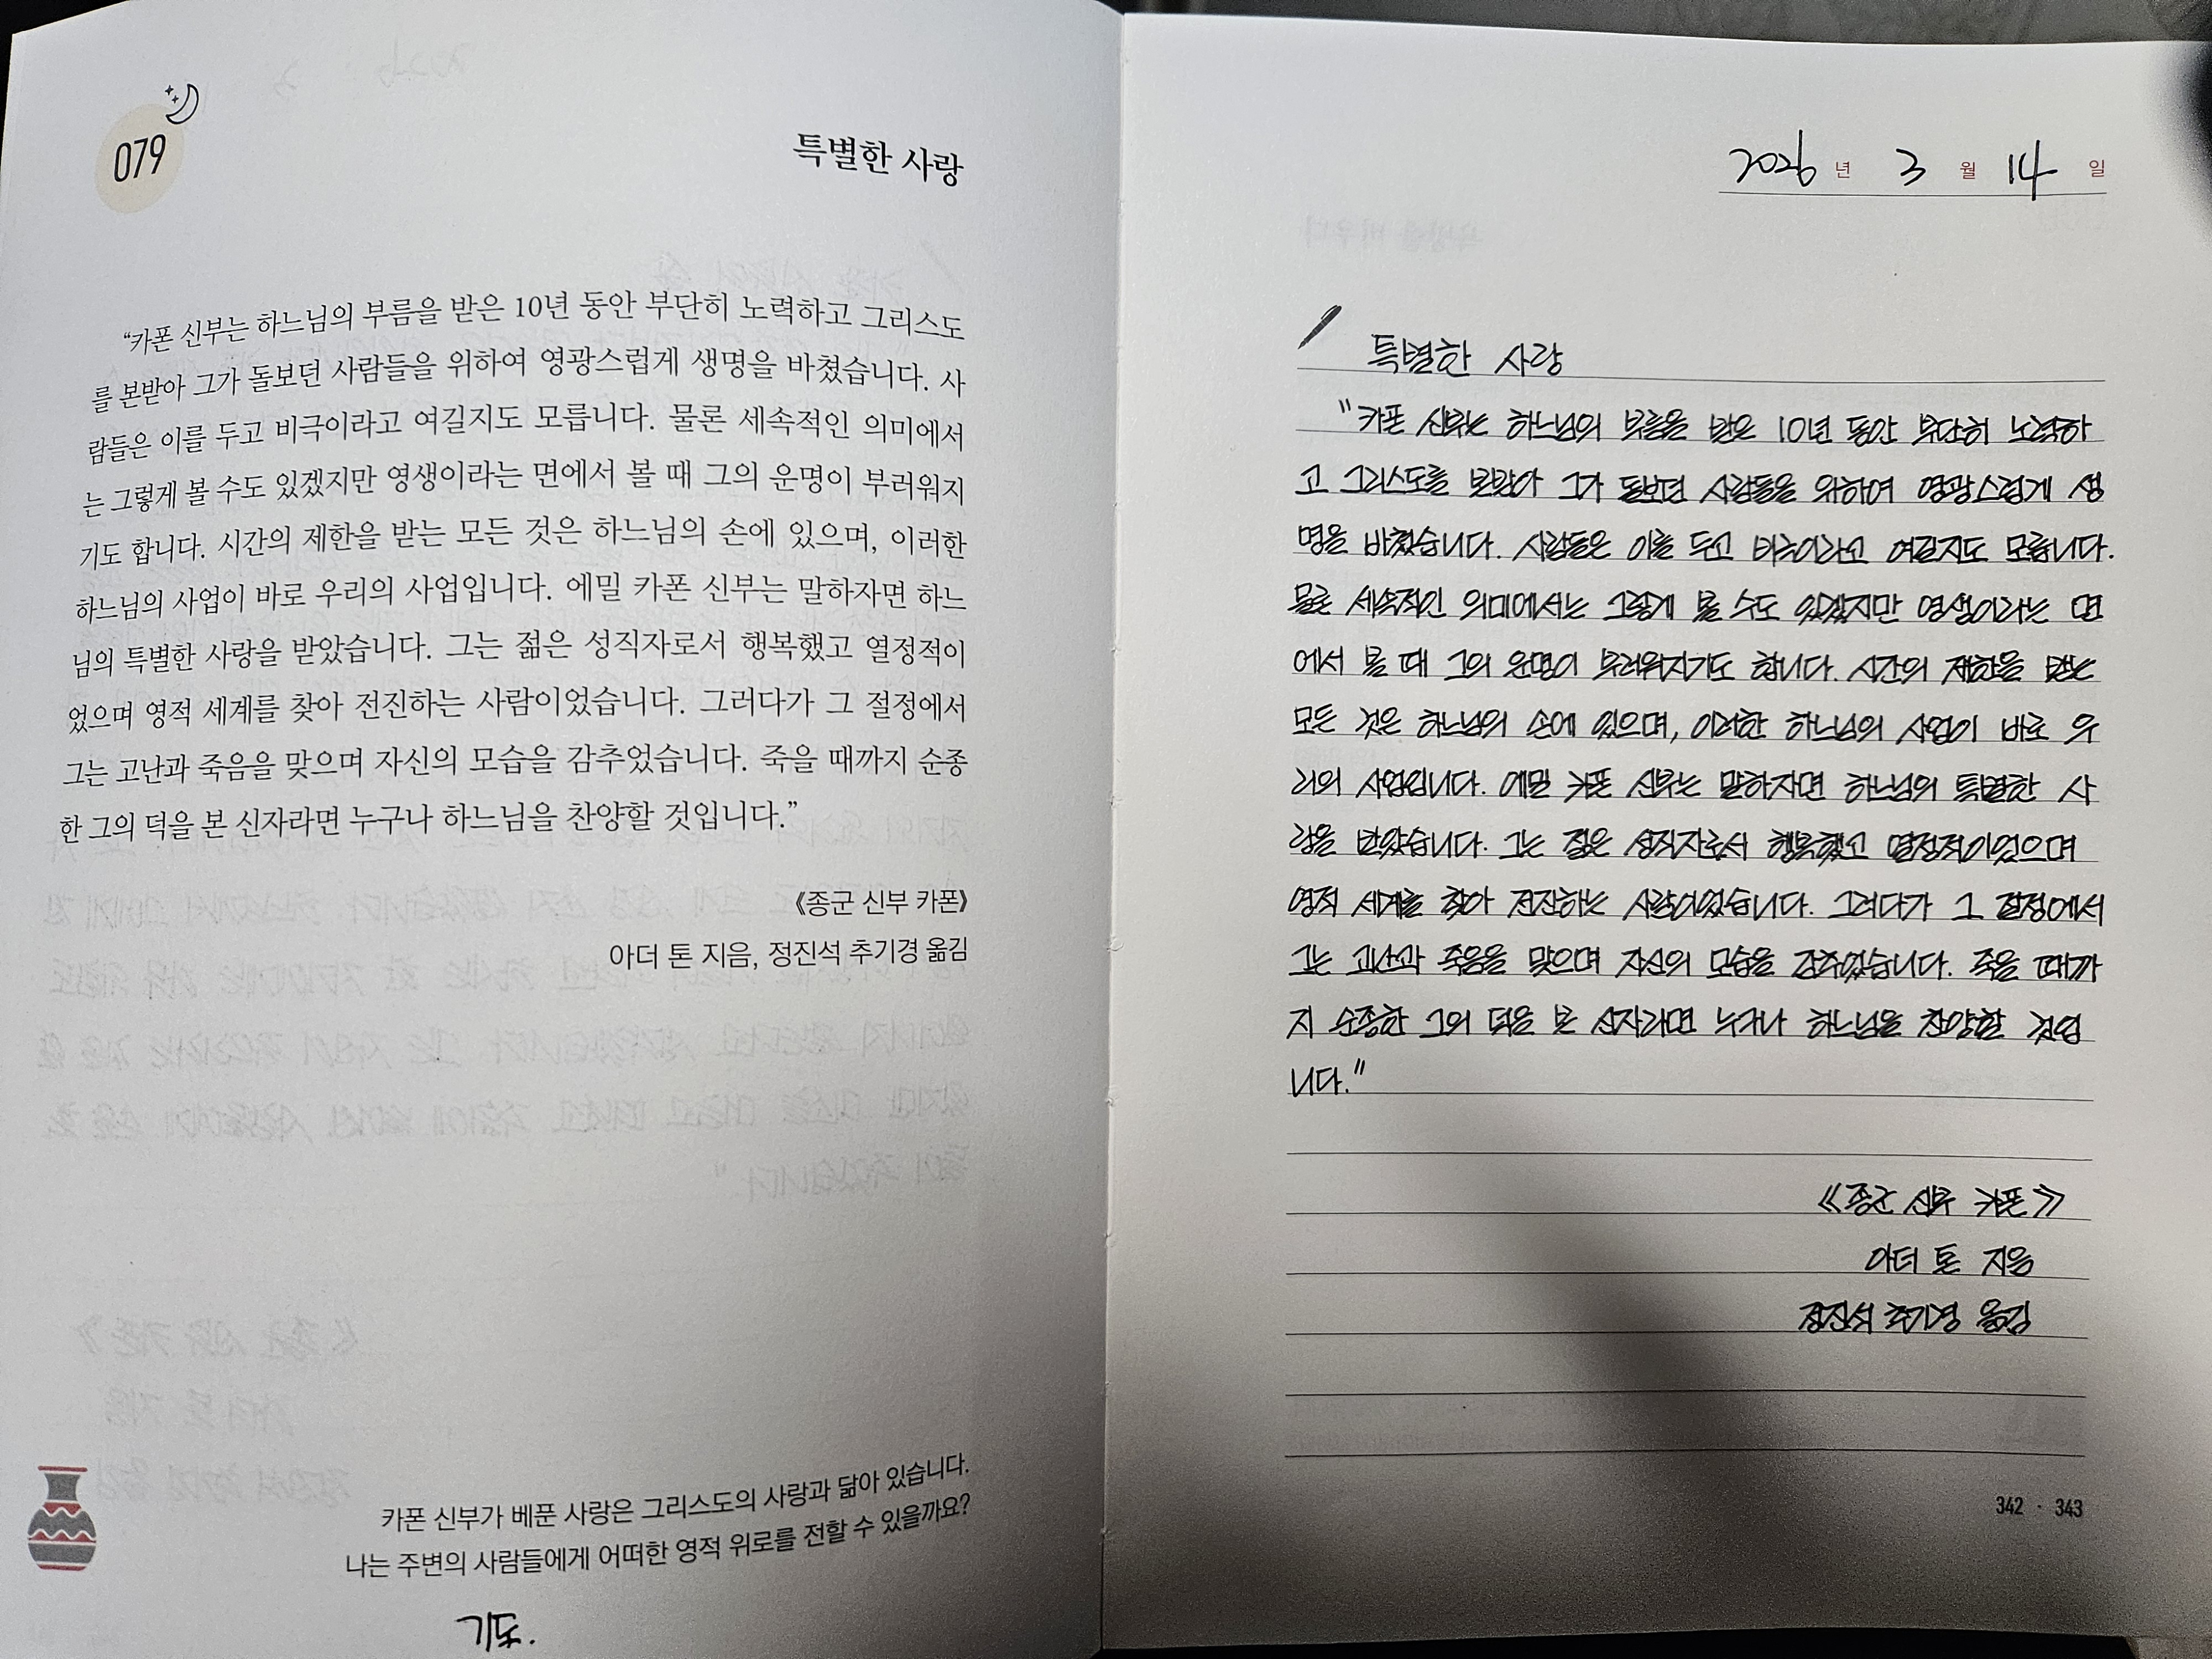 079
특별한 사랑
“카폰 신부는 하느님의 부름을 받은 10년 동안 부단히 노력하고 그리스도
를 본받아 그가 돌보던 사람들을 위하여 영광스럽게 생명을 바쳤습니다. 사
람들은 이를 두고 비극이라고 여길지도 모릅니다. 물론 세속적인 의미에서
는 그렇게 볼 수도 있겠지만 영생이라는 면에서 볼 때 그의 운명이 부러워지
기도 합니다. 시간의 제한을 받는 모든 것은 하느님의 손에 있으며, 이러한
하느님의 사업이 바로 우리의 사업입니다. 에밀 카폰 신부는 말하자면 하느
님의 특별한 사랑을 받았습니다. 그는 젊은 성직자로서 행복했고 열정적이
었으며 영적 세계를 찾아 전진하는 사람이었습니다. 그러다가 그 절정에서
그는 고난과 죽음을 맞으며 자신의 모습을 감추었습니다. 죽을 때까지 순종
한 그의 덕을 본 신자라면 누구나 하느님을 찬양할 것입니다.”
《종군 신부 카폰》
아더 톤 지음, 정진석 추기경 옮김
카폰 신부가 베푼 사랑은 그리스도의 사랑과 닮아 있습니다.
나는 주변의 사람들에게 어떠한 영적 위로를 전할 수 있을까요?
2026 년 3 월 14 일
특별한 사랑
"카폰 신부는 하느님의 부름을 받은 10년 동안 부단히 노력하
고 그리스도를 본받아 그가 돌보던 사람들을 위하여 영광스럽게 생
명을 바쳤습니다. 사람들은 이를 두고 비극이라고 여길지도 모릅니다.
물론 세속적인 의미에서는 그렇게 볼 수도 있겠지만 영생이라는 면
에서 볼 때 그의 운명이 부러워지기도 합니다. 시간의 제한을 받는
모든 것은 하느님의 손에 있으며, 이러한 하느님의 사업이 바로 우
리의 사업입니다. 에밀 카폰 신부는 말하자면 하느님의 특별한 사
랑을 받았습니다. 그는 젊은 성직자로서 행복했고 열정적이었으며
영적 세계를 찾아 전진하는 사람이었습니다. 그러다가 그 절정에서
그는 고난과 죽음을 맞으며 자신의 모습을 감추었습니다. 죽을 때까
지 순종한 그의 덕을 본 신자라면 누구나 하느님을 찬양할 것입
니다."
《종군 신부 카폰》
아더 톤 지음
정진석 추기경 옮김
342 · 343